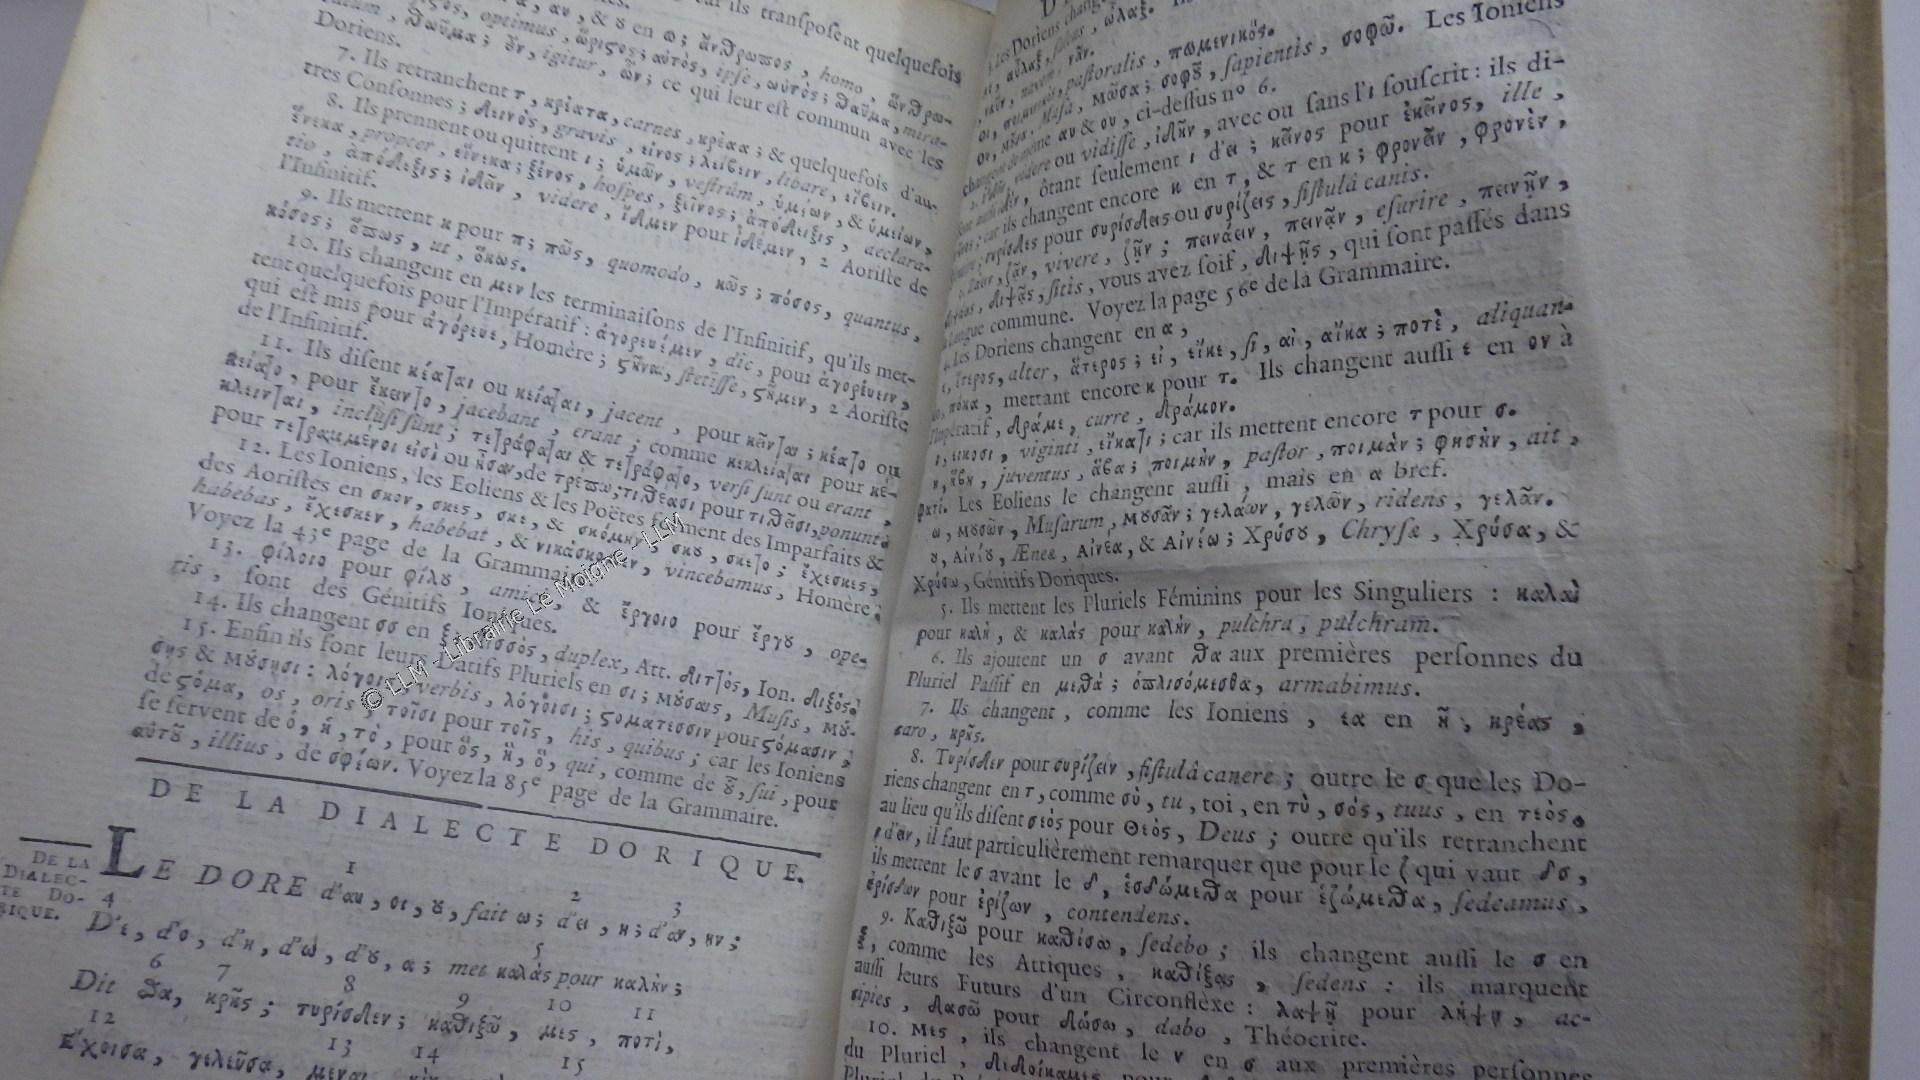 car ils transposent quelquefois
αυ, & ȣ en ω; ἄνθρωπος, homo, ὤνθρω-
optimus, ὤριϛος; αὐτὸς, ipse, ωὐτὸς; θαῦμα, mira-
θωῦμα; ὖν, igitur, ὦν; ce qui leur est commun avec les
Doriens.
7. Ils retranchent τ, κρέατα, carnes, κρέαα; & quelquefois d'au-
tres Consonnes; δεινὸς, gravis, εἰνος; λείβειν, libare, εἴβειν.
8. Ils prennent ou quittent ι; ὑμῶν, vestrûm, ὑμέων, & ὑμείων,
ἕνεκα, propter, εἵνεκα; ξένος, hospes, ξεῖνος; ἀπόδειξις, declara-
tio, ἀπόδεξις; ἰδᾶν, videre, ἴδμεν pour ἰδέμεν, 2 Aoriste de
l'Infinitif.
9. Ils mettent κ pour π; πῶς, quomodo, κῶς; πόσος, quantus,
κόσος; ὅπως, ut, ὅκως.
10. Ils changent en μεν les terminaisons de l'Infinitif, qu'ils met-
tent quelquefois pour l'Impératif: ἀγορευέμεν, dic, pour ἀγορεύειν,
qui est mis pour ἀγόρευε, Homère; ϛῆναι, stetisse, ϛῆμεν, 2 Aoriste
de l'Infinitif.
11. Ils disent κέαται ou κείαται, jacent, pour κεῖνται; κέατο ou
κείατο, pour ἔκειντο, jacebant, erant; comme κεκλείαται pour κέ-
κλεινται, inclusi sunt; τετράφαται & τετράφατο, versi sunt ou erant,
pour τετραμμένοι εἰσὶ ou ἦσαν, de τρέπω; τιθέασι pour τιθεῖσι, ponunt.
12. Les Ioniens, les Eoliens & les Poëtes forment des Imparfaits &
des Aoristes en σκον, σκες, σκε, & σκόμην, σκȣ, σκετο; ἔχεσκες,
habebas, ἔχεσκεν, habebat, & νικάσκομεν, vincebamus, Homère.
Voyez la 43e page de la Grammaire.
13. φίλοιο pour φίλȣ, amici, & ἔργοιο pour ἔργȣ, ope-
ris, sont des Génitifs Ioniques.
14. Ils changent σσ en ξ; δισσὸς, duplex, Att. διττὸς, Ion. διξός.
15. Enfin ils font leurs Datifs Pluriels en σι; μȣσαις, Musis, μȣ-
σῃς & μȣσῃσι: λόγοις, verbis, λόγοισι; ϛομάτεσσιν pour ϛόμασιν,
de ϛόμα, os, oris; τοῖσι pour τοῖς, his, quibus; car les Ioniens
se servent de ὁ, ἡ, τὸ, pour ὃς, ἣ, ὃ, qui, comme de ȣ, sui, pour
αὐτȣ, illius, de σφέων. Voyez la 85e page de la Grammaire.
DE LA DIALECTE DORIQUE.
DE LA
DIALEC-
TE DO-
RIQUE.
1 2 3
LE DORE d'αυ, οι, ȣ, fait ω; d'ει, η; d'ᾳν, ην;
4 5
D'ε, d'ο, d'η, d'ω, d'ȣ, α; met καλὰς pour καλήν;
6 7 8 9 10 11
Dit θα, κρῆς; τυρίσδεν; καθιξῶ, μες, ποτὶ,
12 13 14 15
Ἔχοισα, γελεῦσα,
Les Doriens chang
αὖλαξ, sulcus, ὦλαξ.
ναῦν, navem, νᾶν.
οι, ποιμενικὸς, pastoralis, πωμενικός.
ου, μȣσα, Musa, μῶσα; σοφȣ, sapientis, σοφῶ. Les Ioniens
changent de même αυ & ου, ci-dessus n° 6.
2. ἰδεῖν, videre ou vidisse, ἰδῆν, avec ou sans l'ι souscrit: ils di-
sent aussi ἰδὲν, ôtant seulement ι d'ει; κᾶνος pour ἐκεῖνος, ille,
κῆνος; car ils changent encore η en τ, & τ en κ; φρονεῖν, φρονὲν,
τυρίσδες pour συρίσδεις ou συρίζεις, fistulâ canis.
3. Ζάειν, ζᾷν, vivere, ζῆν; πεινάειν, πεινᾷν, esurire, πεινῆν,
διψάεις, διψᾷς, sitis, vous avez soif, διψῆς, qui sont passés dans
la Langue commune. Voyez la page 56e de la Grammaire.
4. Les Doriens changent en α,
ε, ἕτερος, alter, ἅτερος; εἰ, εἴκε, si, αἰ, αἴκα; ποτὲ, aliquan-
do, πόκα, mettant encore κ pour τ. Ils changent aussi ε en ον à
l'Impératif, δράμε, curre, δράμον.
ι, εἴκοσι, viginti, εἴκατι; car ils mettent encore τ pour σ.
η, ἥβη, juventus, ἅβα; ποιμὴν, pastor, ποιμὰν; φησὴν, ait,
φατί. Les Eoliens le changent aussi, mais en α bref.
ω, μȣσῶν, Musarum, μȣσᾶν; γελάων, γελῶν, ridens, γελᾶν.
ȣ, Αἰνίȣ, Æneæ, Αἰνέα, & Αἰνέω; Χρύσȣ, Chrysæ, Χρύσα, &
Χρύσω, Génitifs Doriques.
5. Ils mettent les Pluriels Féminins pour les Singuliers: καλαὶ
pour καλὴ, & καλὰς pour καλὴν, pulchra, pulchram.
6. Ils ajoutent un σ avant θα aux premières personnes du
Pluriel Passif en μεθα; ὁπλισόμεσθα, armabimus.
7. Ils changent, comme les Ioniens, εα en ῆ, κρέας,
caro, κρῆς.
8. Τυρίσδεν pour συρίζειν, fistulâ canere; outre le σ que les Do-
riens changent en τ, comme σὺ, tu, toi, en τὺ, σὸς, tuus, en τεὸς.
au lieu qu'ils disent σιὸς pour Θεὸς, Deus; outre qu'ils retranchent
ι d'ειν, il faut particulièrement remarquer que pour le ζ qui vaut δσ,
ils mettent le σ avant le δ, ἑσδώμεθα pour ἑζώμεθα, sedeamus,
ἐρίσδων pour ἐρίζων, contendens.
9. Καθιξῶ pour καθίσω, sedebo; ils changent aussi le σ en
ξ, comme les Attiques, καθίξας, sedens: ils marquent
aussi leurs Futurs d'un Circonflèxe: λαψῇ pour λήψῃ, ac-
cipies, δασῶ pour δώσω, dabo, Théocrite.
10. Μες, ils changent le ν en σ aux premières personnes
du Pluriel, διδοίκαμες pour
© LLM - Librairie Le Moigne - LLM